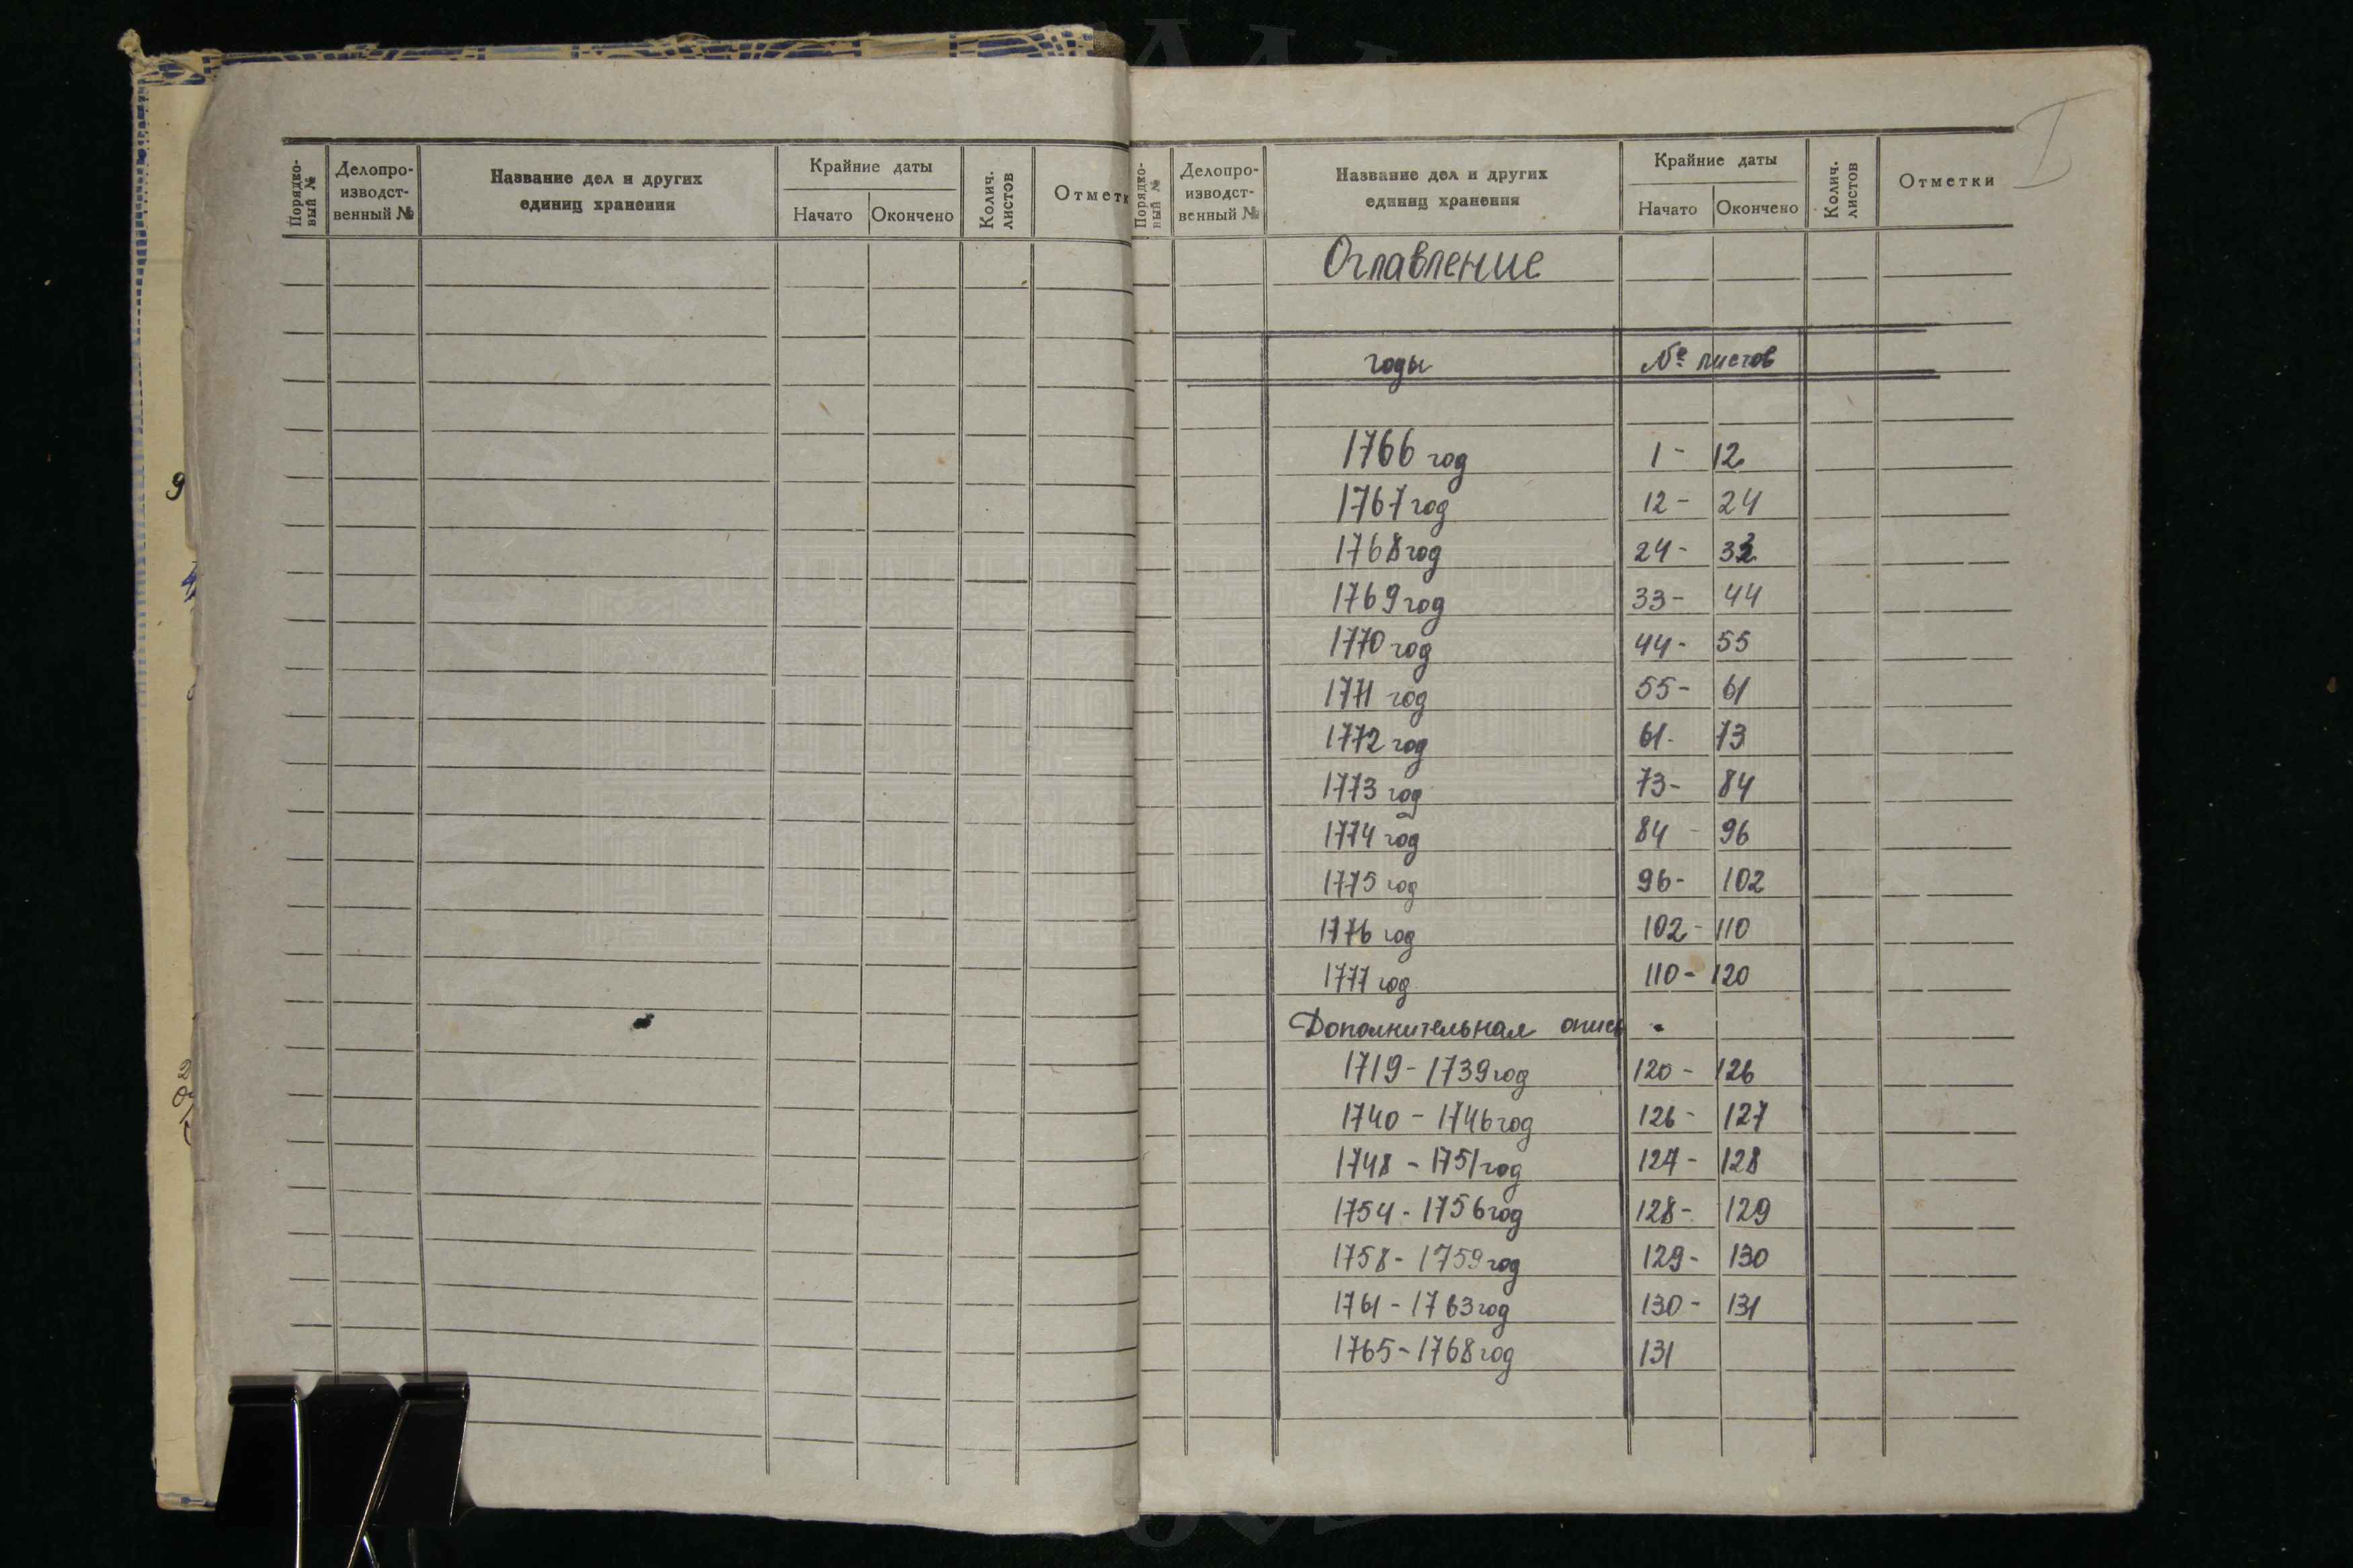 Порядко-
вый №
Делопро-
изводст-
венный №
Название дел и других
единиц хранения
Крайние даты
Начато
Окончено
Колич.
листов
Отметк
Порядко-
вый №
Делопро-
изводст-
венный №
Название дел и других
единиц хранения
Крайние даты
Начато
Окончено
Колич.
листов
Отметки
I
Оглавление
годы № листов
1766 год 1 - 12
1767 год 12 - 24
1768 год 24 -
1769 год 33 - 44
1770 год 44 - 55
1771 год 55 - 61
1772 год 61 - 73
1773 год 73 - 84
1774 год 84 - 96
1775 год 96 - 102
1776 год 102 - 110
1777 год 110 - 120
Дополнительная опись
1719 - 1739 год 120 - 126
1740 - 1746 год 126 - 127
1748 - 1751 год 127 - 128
1754 - 1756 год 128 - 129
1758 - 1759 год 129 - 130
1761 - 1763 год 130 - 131
1765 - 1768 год 131